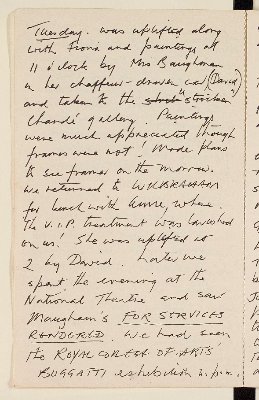 Tuesday. was uplifted along
with Fiona and paintings at
11 o'clock by Mrs Baughman
in her chaffeur-driven car (David)
and taken to the
Chardé gallery. Paintings
were much appreciated though
frames were not! Made plans
to see framer on the morrow.
We returned to
for lunch with where
The V.I.P. treatment was lavished
on us! She was uplifted at
2 by David. Later we
spent the evening at the
National Theatre and saw
Maugham's FOR SERVICES
RENDERED. We had seen
the ROYAL COLLEGE OF ARTS
BUGGATTI exhibition 2. p.m.